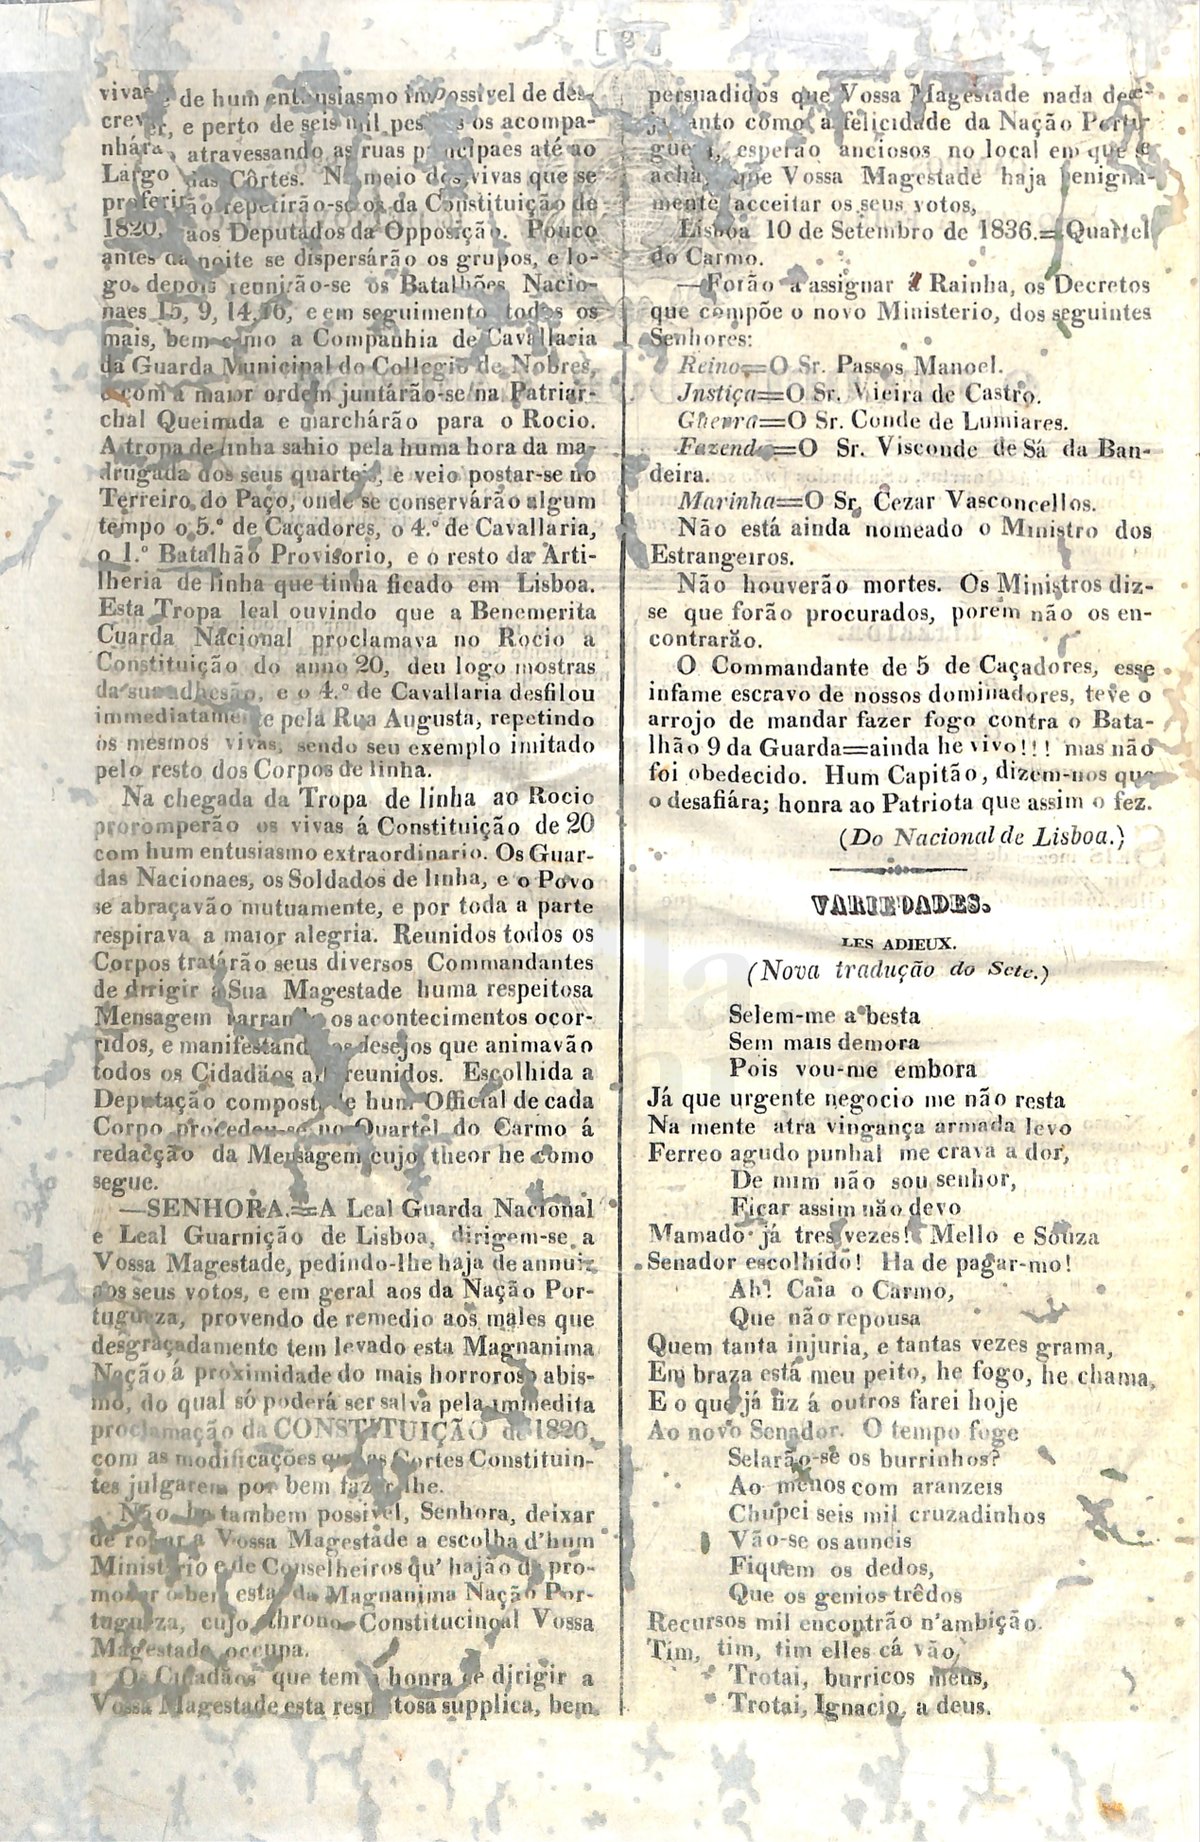 [ 2 ]
vivas de hum enthusiasmo impossivel de des-
crever, e perto de seis mil pessoas os acompa-
nhárão, atravessando as ruas principaes até ao
Largo das Côrtes. No meio dos vivas que se
proferirão repetirão-se os da Constituição de
1820, aos Deputados da Opposição. Pouco
antes da noite se dispersárão os grupos, e lo-
go depois reunirão-se os Batalhões Nacio-
naes 15, 9, 14, 16, e em seguimento todos os
mais, bem como a Companhia de Cavallaria
da Guarda Municipal do Collegio de Nobres,
e com a maior ordem juntárão-se na Patriar-
chal Queimada e marchárão para o Rocio.
A tropa de linha sahio pela huma hora da ma-
drugada dos seus quarteis, e veio postar-se no
Terreiro do Paço, onde se conservárão algum
tempo o 5.º de Caçadores, o 4.º de Cavallaria,
o 1.º Batalhão Provisorio, e o resto da Arti-
lheria de linha que tinha ficado em Lisboa.
Esta Tropa leal ouvindo que a Benemerita
Cuarda Nacional proclamava no Rocio a
Constituição do anno 20, deu logo mostras
da sua adhesão, e o 4.º de Cavallaria desfilou
immediatamente pela Rua Augusta, repetindo
os mesmos vivas, sendo seu exemplo imitado
pelo resto dos Corpos de linha.
Na chegada da Tropa de linha ao Rocio
proromperão os vivas á Constituição de 20
com hum entusiasmo extraordinario. Os Guar-
das Nacionaes, os Soldados de linha, e o Povo
se abraçavão mutuamente, e por toda a parte
respirava a maior alegria. Reunidos todos os
Corpos tratárão seus diversos Commandantes
de dirigir a Sua Magestade huma respeitosa
Mensagem narrando os acontecimentos ocor-
ridos, e manifestando os desejos que animavão
todos os Cidadãos alli reunidos. Escolhida a
Deputação composta de hum Official de cada
Corpo procedeu-se no Quartel do Carmo á
redacção da Mensagem cujo theor he como
segue.
—SENHORA.=A Leal Guarda Nacional
e Leal Guarnição de Lisboa, dirigem-se a
Vossa Magestade, pedindo-lhe haja de annuir
aos seus votos, e em geral aos da Nação Por-
tugueza, provendo de remedio aos males que
desgraçadamente tem levado esta Magnanima
Nação á proximidade do mais horroroso abis-
mo, do qual só poderá ser salva pela immedita
proclamação da CONSTITUIÇÃO de 1820,
com as modificações que as Cortes Constituin-
tes julgarem por bem fazer lhe.
Não he tambem possivel, Senhora, deixar
de rogar a Vossa Magestade a escolha d'hum
Ministerio e de Conselheiros qu' hajão de pro-
mover o bem estar da Magnanima Nação Por-
tugueza, cujo throno Constitucinoal Vossa
Magestade occupa.
Os Cidadãos que tem a honra de dirigir a
Vossa Magestade esta respeitosa supplica, bem
persuadidos que Vossa Magestade nada dese-
ja tanto como a felicidade da Nação Portu-
gueza, esperão anciosos no local em que se
achão, que Vossa Magestade haja benigna-
mente acceitar os seus votos,
Lisboa 10 de Setembro de 1836.=Quartel
do Carmo.
—Forão a assignar á Rainha, os Decretos
que compõe o novo Ministerio, dos seguintes
Senhores:
Reino=O Sr. Passos Manoel.
Justiça=O Sr. Vieira de Castro.
Guerra=O Sr. Conde de Lumiares.
Fazenda=O Sr. Visconde de Sá da Ban-
deira.
Marinha=O Sr. Cezar Vasconcellos.
Não está ainda nomeado o Ministro dos
Estrangeiros.
Não houverão mortes. Os Ministros diz-
se que forão procurados, porem não os en-
contrarão.
O Commandante de 5 de Caçadores, esse
infame escravo de nossos dominadores, teve o
arrojo de mandar fazer fogo contra o Bata-
lhão 9 da Guarda=ainda he vivo!!! mas não
foi obedecido. Hum Capitão, dizem-nos que
o desafiára; honra ao Patriota que assim o fez.
(Do Nacional de Lisboa.)
VARIEDADES.
LES ADIEUX.
(Nova tradução do Sete.)
Selem-me a besta
Sem mais demora
Pois vou-me embora
Já que urgente negocio me não resta
Na mente atra vingança armada levo
Ferreo agudo punhal me crava a dor,
De mim não sou senhor,
Ficar assim não devo
Mamado já tres vezes! Mello e Souza
Senador escolhido! Ha de pagar-mo!
Ah! Caia o Carmo,
Que não repousa
Quem tanta injuria, e tantas vezes grama,
Em braza está meu peito, he fogo, he chama,
E o que já fiz á outros farei hoje
Ao novo Senador. O tempo foge
Selarão-se os burrinhos?
Ao menos com aranzeis
Chupei seis mil cruzadinhos
Vão-se os anneis
Fiquem os dedos,
Que os genios trêdos
Recursos mil encontrão n'ambição.
Tim, tim, tim elles cá vão,
Trotai, burricos meus,
Trotai, Ignacio, a deus.